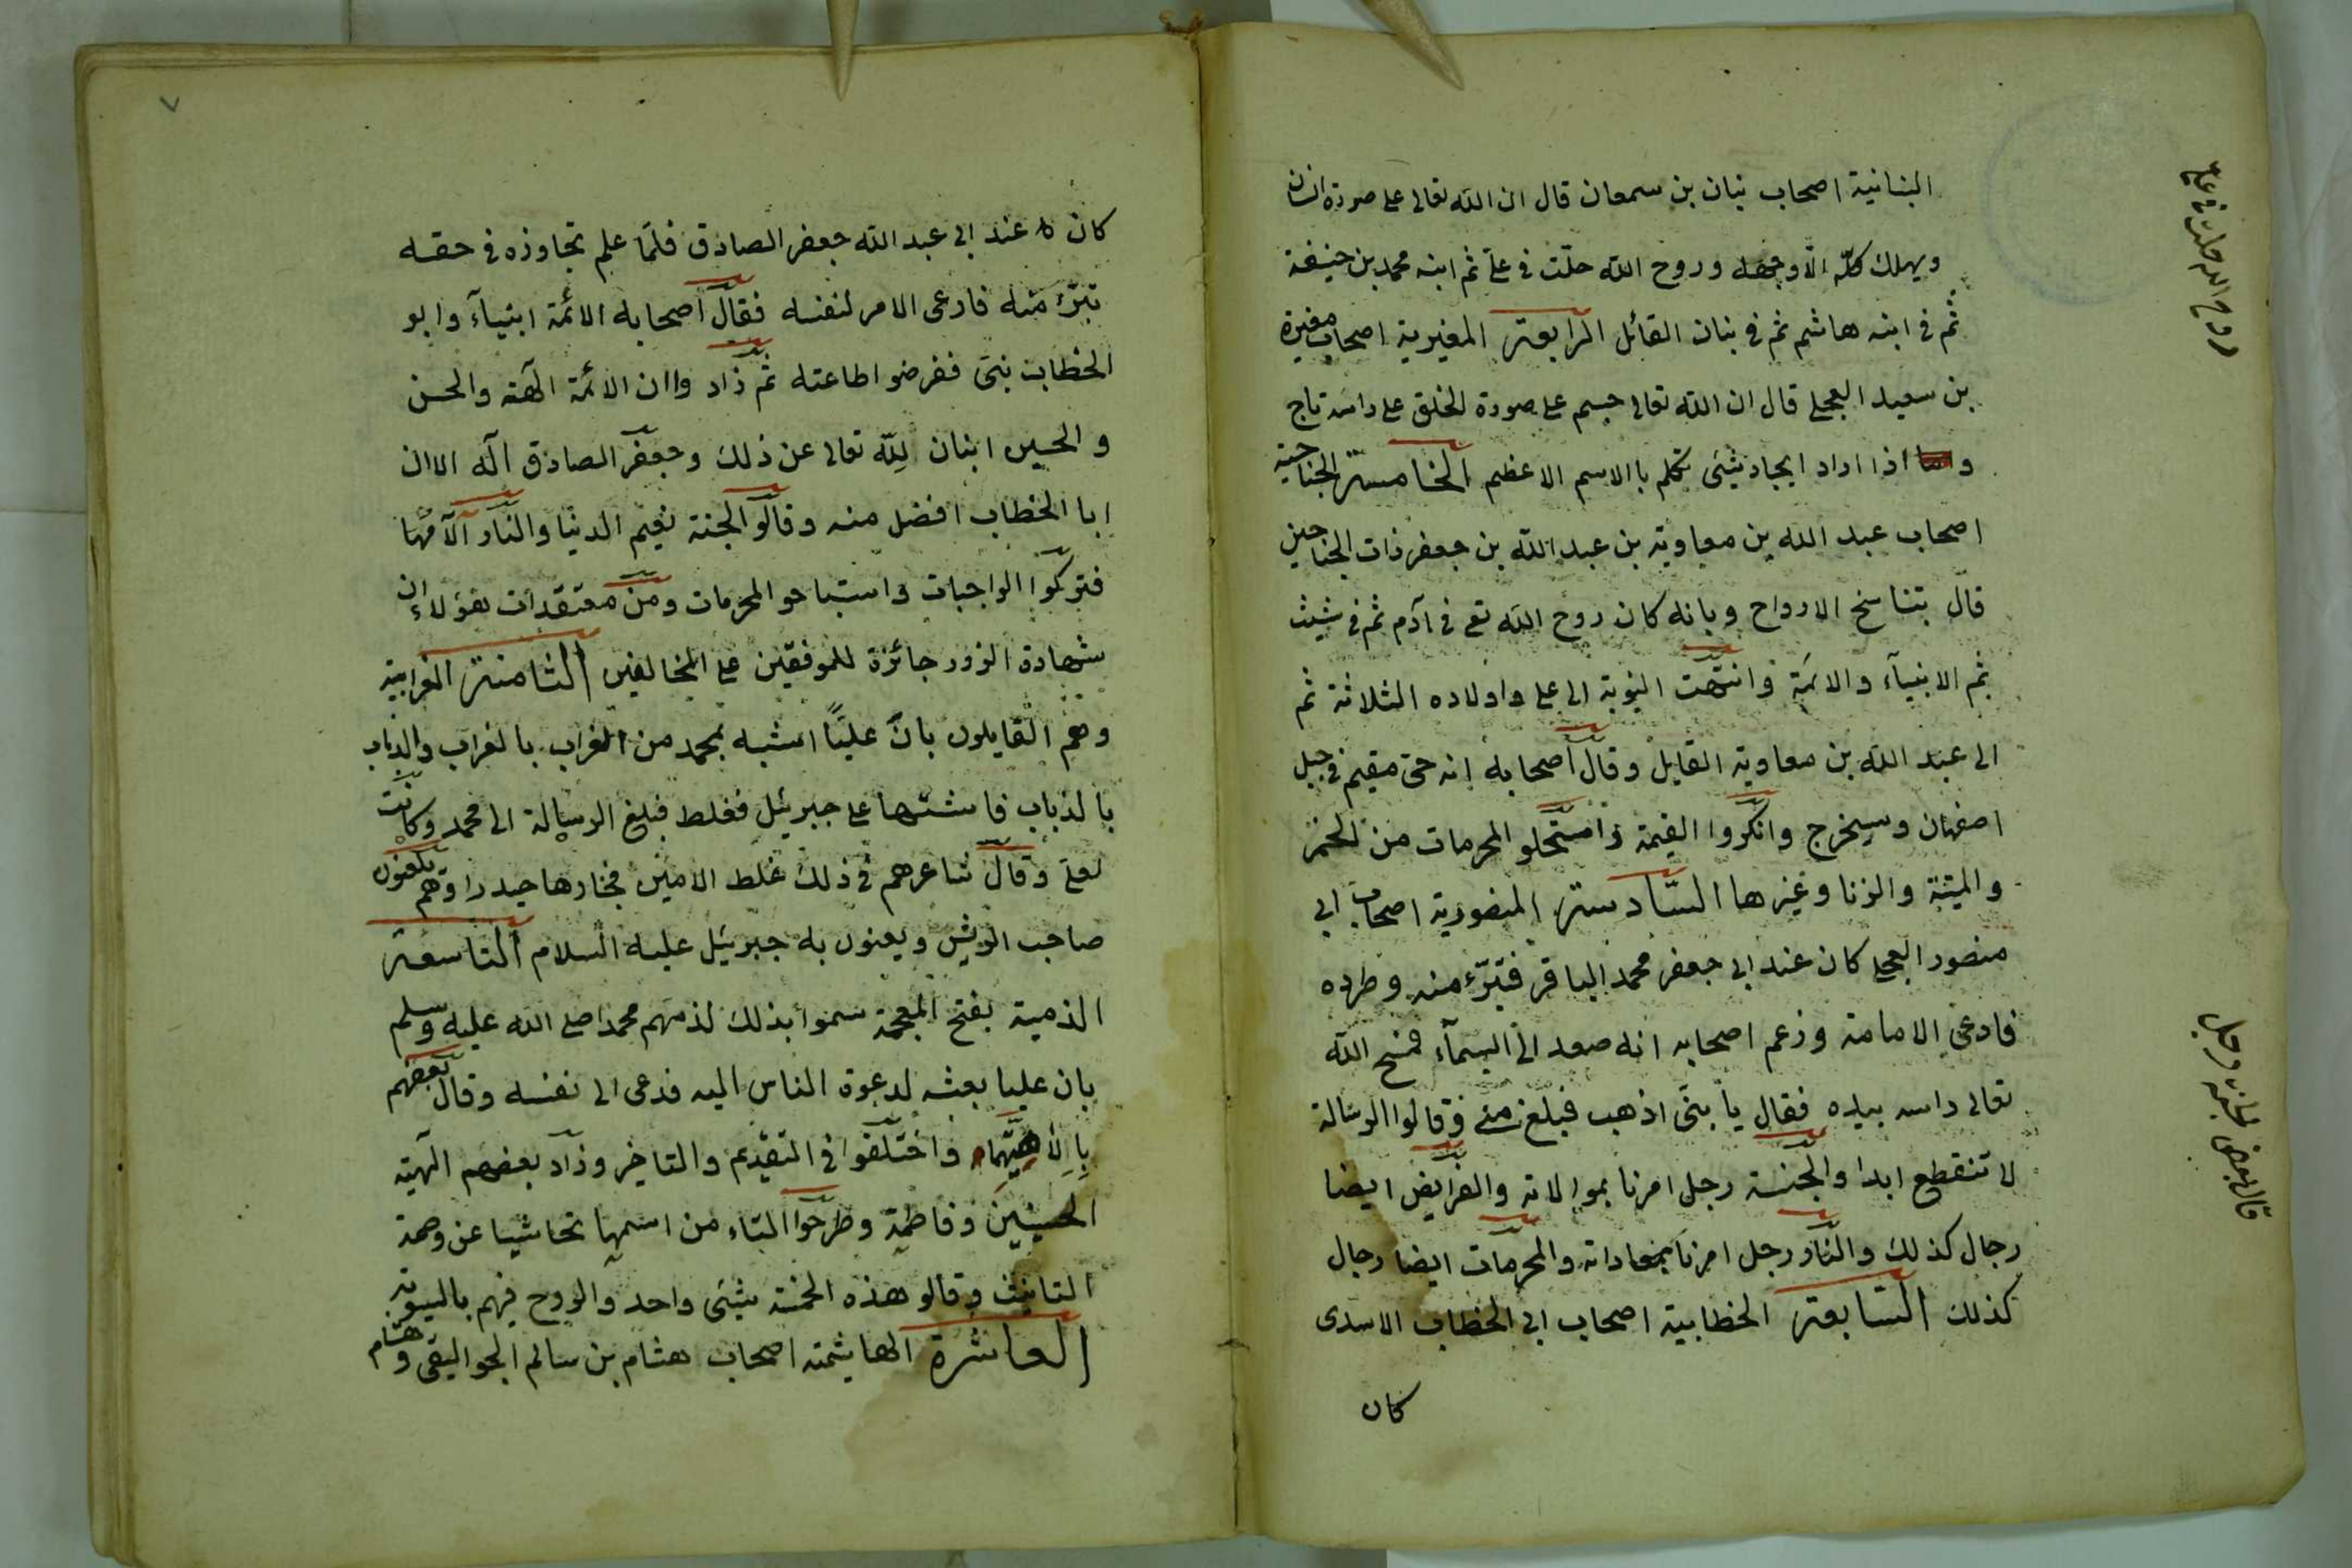 البنانية اصحاب بنان بن سمعان قال ان الله تعالى على صورة انسان
ويهلك كلّه الّا وجهه وروح الله حلّت في علىّ ثم ابنه محمد بن حنيفة
ثم في ابنه هاشم ثم في بنان القائل الرابعة المغيرية اصحاب مغيرة
بن سعيد العجلى قال ان الله تعالى جسم على صورة الخلق على راسه تاج
و اذا اراد ايجاد شئ تكلم با الاسم الاعظم الخامسة الجناحية
اصحاب عبد الله بن معاوية بن عبد الله بن جعفر ذات الجناحين
قال بتناسخ الارواح وبانه كان روح الله تع في آدم ثم في شيث
ثم الانبيآء والائمة وانتهت النوبة الى على واولاده الثلاثة ثم
الى عبد الله بن معاوية القايل وقال اصحابه انه حى مقيم في جبل
اصفهان وسيخرج وانكروا القيمة واستحلو المحرمات من الخمر
والميتة والزنا وغيرها السّادسة المنصورية اصحاب ابى
منصور العجلى كان عند ابى جعفر محمد الباقر فتبرّء منه وطرده
فادعى الامامة وزعم اصحابه انه صعد الى السمآء فمسح الله
تعالى راسه بيده فقال يا بنىّ اذهب فبلغ منى وقالوا الرسالة
لا تنقطع ابدا والجنة رجل امرنا بموالاته والفرايض ايضا
رجال كذلك والنّار رجل امرنا بمعاداته والمحرمات ايضا رجال
كذلك السّابعة الخطابية اصحاب ابى الخطاب الاسدى
كان
روح الله حلت في على
قال بعض الجنة رجل
٧
كان عند ابى عبد الله جعفر الصادق فلمّا علم تجاوزه في حقه
تبرّء منه فادعى الامر لنفسه فقال اصحابه الائمة انبيآء وابو
الخطاب نبىّ ففرضوا طاعته ثم زاد واان الائمة آلهة والحسن
والحسين ابنان لِلّه تعالى عن ذلك وجعفر الصادق آله الا ان
ابا الخطاب افضل منه وقالوا الجنة نعيم الدنيا والنّار آلامها
فتركوا الواجبات واستباحو المحرمات ومن معتقدات هؤلاء ان
شهادة الزور جائزة للموفقين على المخالفين الثامنة الغرابية
وهم القايلون بانّ عليّا اشبه بمحمد من الغراب بالغراب والذباب
بالذباب فاشتبها على جبرئيل فغلط فبلغ الرسالة الى محمد وكانت
لعلى وقال شاعرهم في ذلك غلط الامين فجازها حيدرا وهم يلعنون
صاحب الريش ويعنون به جبرئيل عليه السلام التاسعة
الذمية بفتح المعجمة سموا بذلك لذمهم محمدا صلى الله عليه وسلم
بان عليا بعثه لدعوة الناس اليه فدعى الى نفسه وقال بعضهم
بِالٰهيّتهما واختلفوا في التقديم والتاخير وزاد بعضهم آلهية
الحسينين وفاطمة وطرحوا التاء من اسمها تحاشيا عن وصمة
التانيث وقالو هذه الخمسة شئ واحد والروح فيهم بالسوية
العاشرة الهاشمية اصحاب هشام بن سالم الجواليقى وهشام